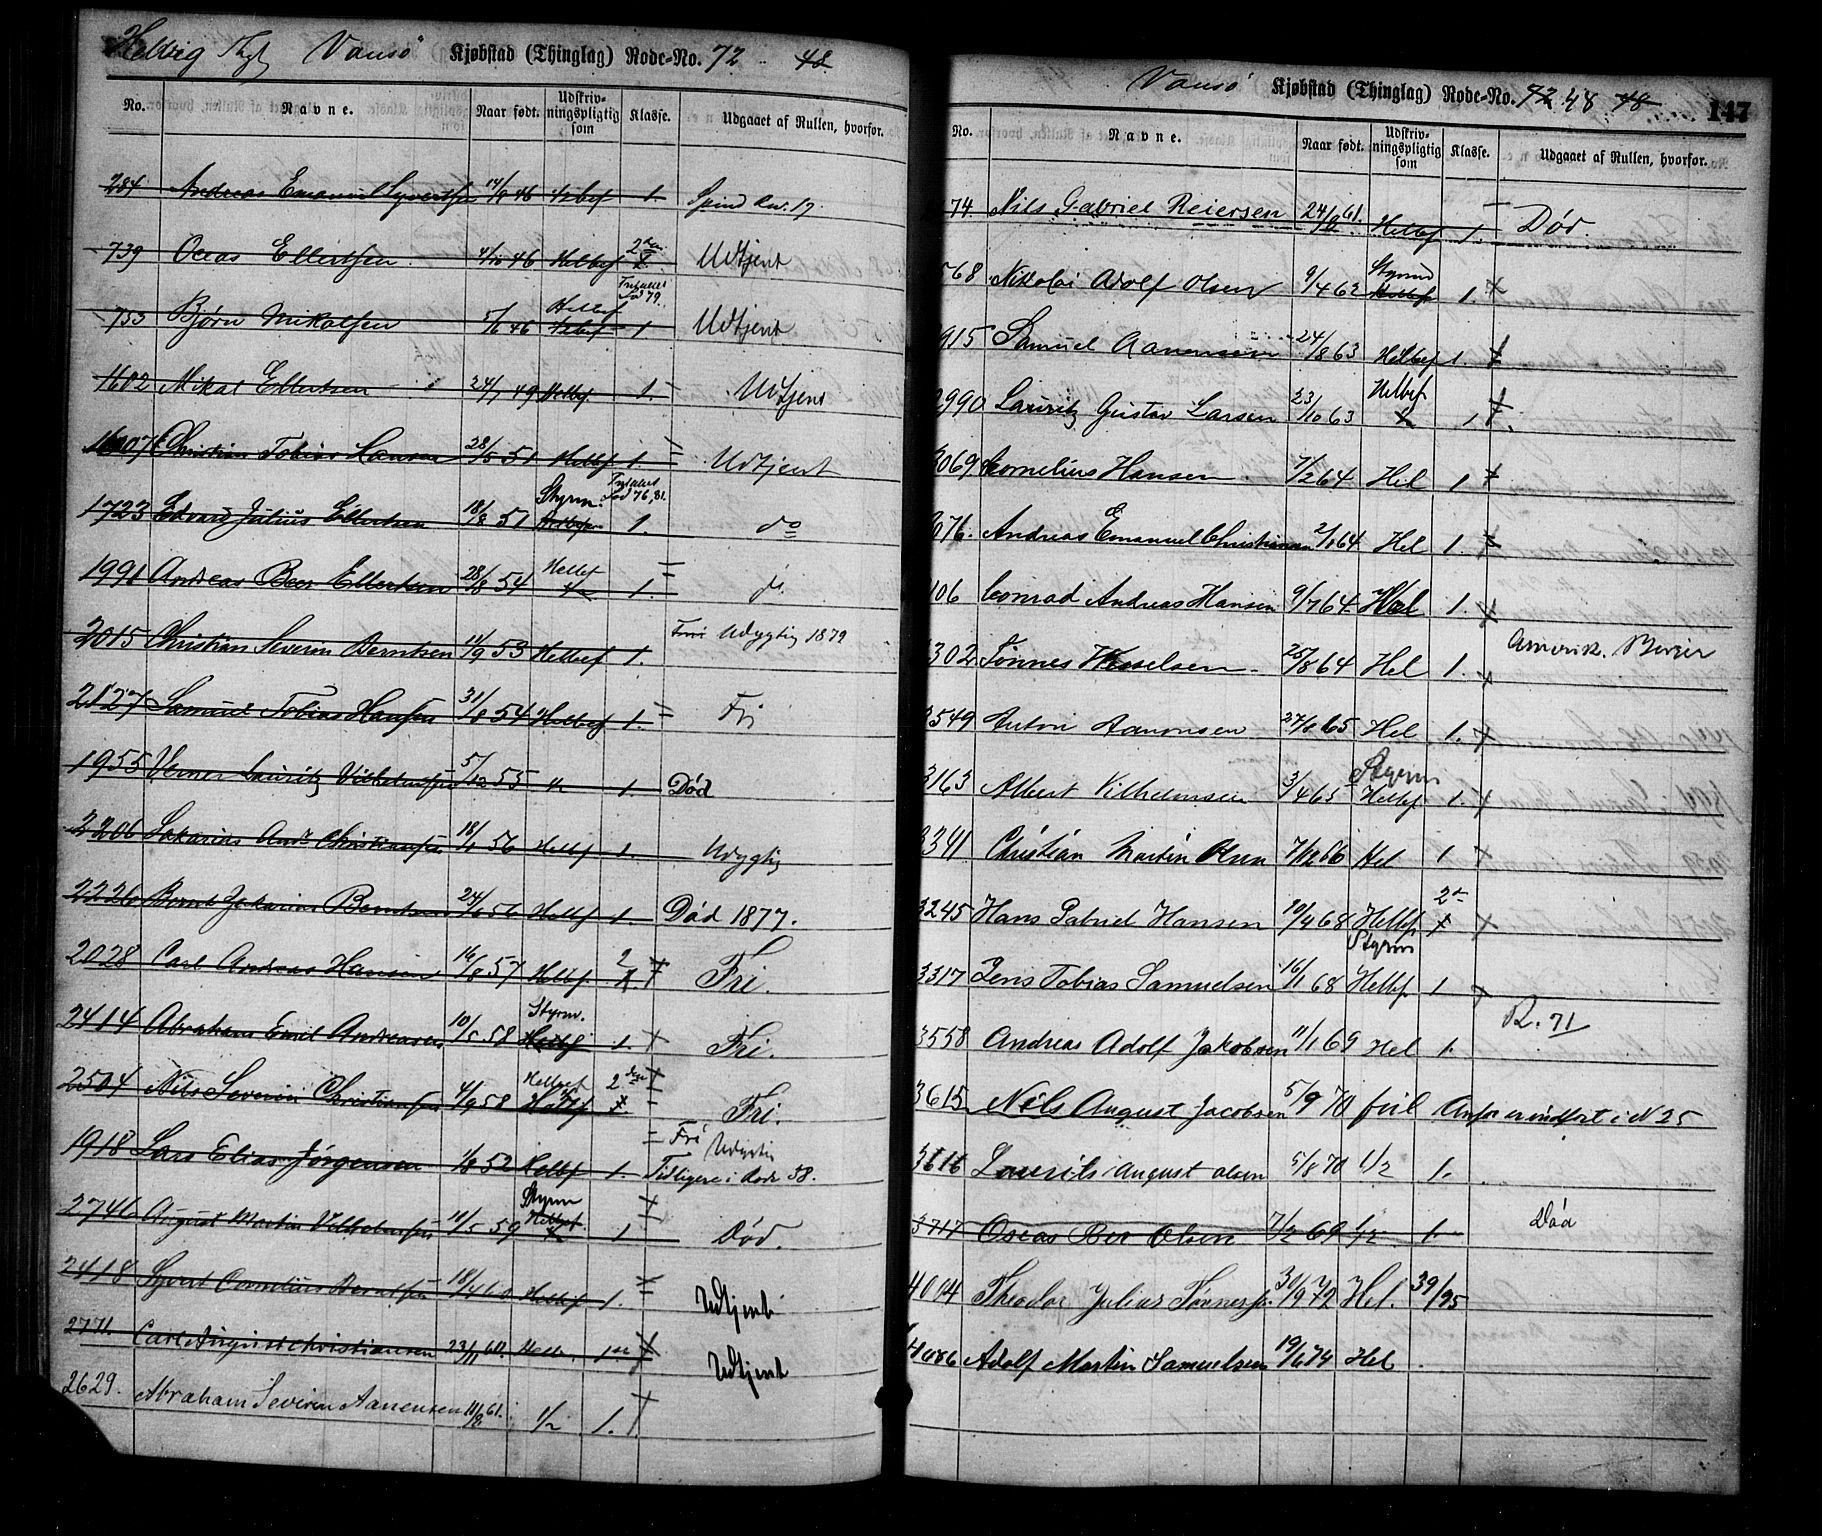 Helvig Vansö Kjøbstad (Thinglag) Rode-No. 72 48
No. Navne. Naar født. Udskriv-ningspligtig som Klasse. Udgaaet af Rullen, hvorfor.
284 Andreas Emanuel Syvertsen 46 1. Spind Rn. 17.
739 Oeas Ellertsen 46 Helbef 2den 1 Udtjent
753 Bjørn Mikalsen 46 Helbef 1/2bef 1 Udtjent
1602 Mikal Ellertsen 24/7 49 Helbef 1. Udtjent
Christian Tobias Hansen 28/5 51 Helbef 1. Udtjent
1723 Edvard Julius Ellertsen 18/8 51 Styrm. 1. do
1991 Andreas Beer Ellertsen 28/8 54 Helbef 1/2 1. do
2015 Christian Severin Berntsen 11/9 53 Helbef 1. Fri Udygtig 1879
2127 Samuel Tobias Hansen 31/8 54 Helbef 1. Fri
1955 Verner Lauritz Vilhelmsen 5/12 55 1/2 1. Død
2206 Sakarias Andr. Christiansen 18/1 56 Helbf 1. Udygtig
2226 Bernt Zakarias Berntsen 24/6 56 Helbf 1. Død 1877.
2028 Carl Andreas Hansen 16/8 57 Helbf. 2 1 Fri.
2414 Abraham Emil Andreasen 10/5 58 Styrm. Helbf 1. Fri.
2504 Nils Severin Christiansen 4/9 58 Helbef 2den 1 Fri.
1918 Lars Elias Jørgensen 1/8 52 Helbf 1. Fri Udygtig Tidligere i Rode 58.
2746 August Martin Vilhelmsen 10/5 59 Styrm Helbef. 1/2 1 Død.
2418 Syvert Cornelius Berntsen 18/4 60 Helbef 1. Udtjent
2771. Carl August Christiansen 23/11 60. Helb. 1 Udtjent
2629. Abraham Severin Aanensen 11/8 61. 1/2 1.
Vansö Kjøbstad (Thinglag) Rode-No. 72 48 48 147
No. Navne. Naar født. Udskriv-ningspligtig som Klasse. Udgaaet af Rullen, hvorfor.
74. Nils Gabriel Reiersen 61. Helbef 1. Død.
568 Nikolai Adolf Olsen 9/4 62 Styrm Helbef 1.
915 Samuel Aanensen 24/8 63 Helbef 1.
2990 Lauritz Gustav Larsen 23/10 63 Helbef 1/2 1
3069 Cornelius Hansen 7/2 64 Hel 1
Andreas Emanuel Christiansen 64 Hel 1.
106 Conrad Andreas Hansen 9/7 64 Hel 1.
302 Tønnes Wesselsen 25/8 64 Hel 1. Amerik. Borger
3549 Anton Aanonsen 27/8 65 Hel 1.
3163 Albert Vilhelmsen 3/4 65 Styrm Helbef 1.
3341 Christian Martin Olsen 7/12 66 Hel 1
3245 Hans Gabriel Hansen 10/4 68 Helbef. 2d 1
3317 Jens Tobias Samuelsen 16/1 68 Styrm Helbf. 1
3558 Andreas Adolf Jakobsen 11/1 69 Hel 1. R. 71
3615 Nils August Jacobsen 5/9 70 feil Anf. er indført i N 25
3616 Laurits August Olsen 5/8 70 1/2 1.
3717 Oseas Ber Olsen 7/2 69 1/2 1. Død
4004 Theodor Julius Tønnesen 30/9 72 Hel. 39/95
4086 Adolf Martin Samuelsen 19/6 74 Hel